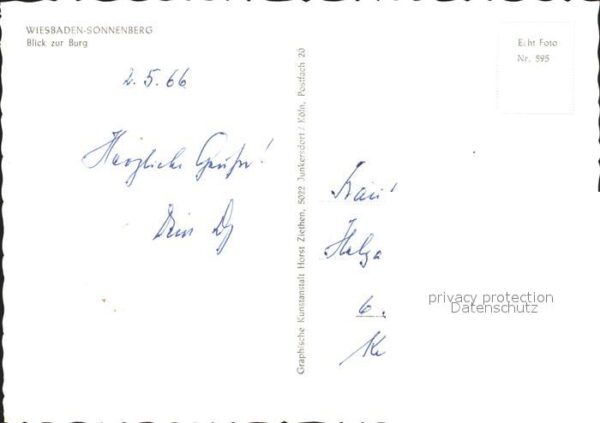 WIESBADEN-SONNENBERG
Blick zur Burg
2.5.66
Herzliche Grüße!
Dein
Graphische Kunstanstalt Horst Ziethen, 5022 Junkersdorf/Köln, Postfach 20
Echt Foto
Nr. 595
Helga
6.
privacy protection
Datenschutz